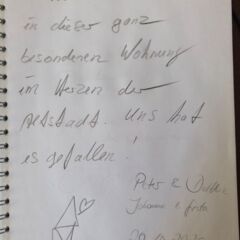 in dieser ganz
besonderen Wohnung
im Herzen der
Altstadt. Uns hat
es gefallen!
Peter &
Johanna &